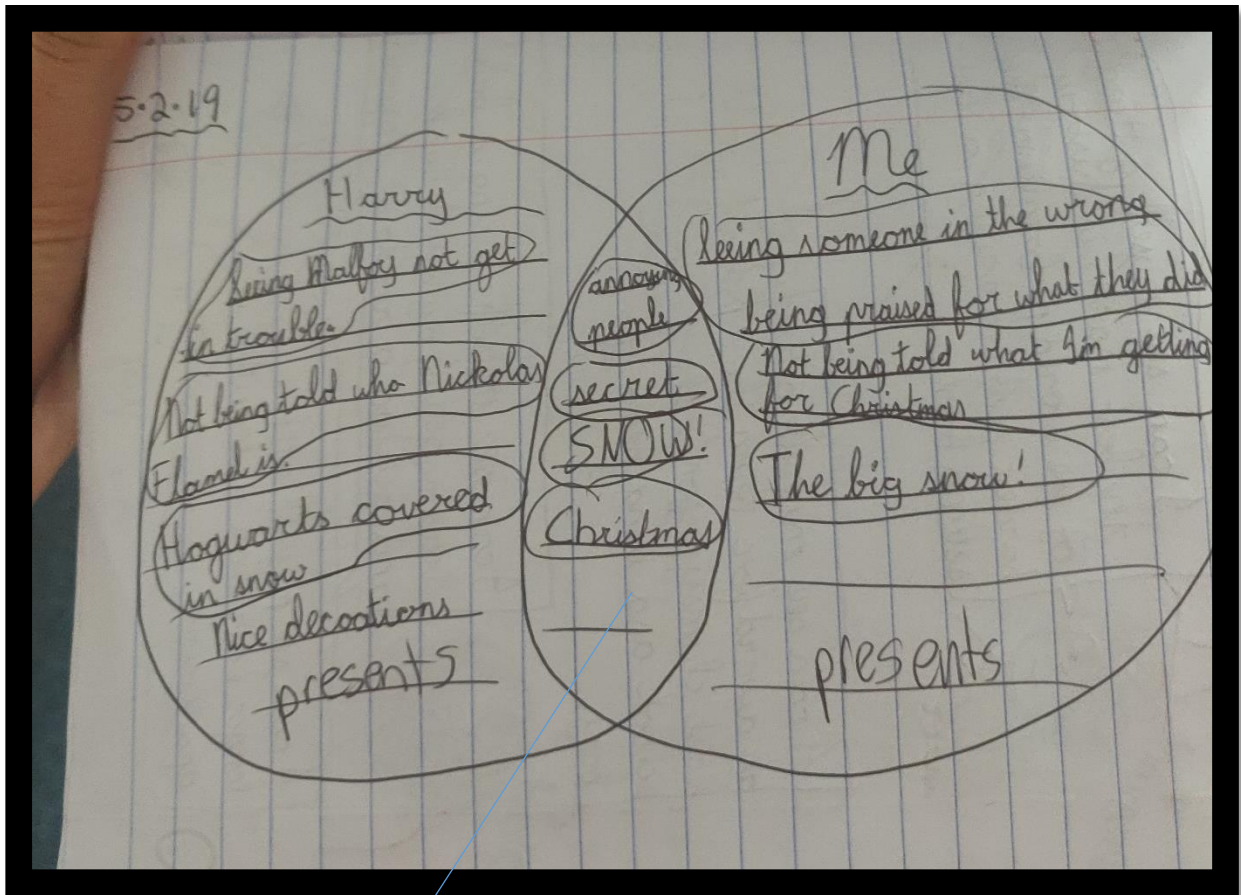 5.2.19
Harry
Seeing Malfoy not get
in trouble.
Not being told who Nickolas
Flamel is.
Hogwarts covered
in snow
Nice decoations
presents
annoying
people
secret
SNOW!
Christmas
Me
Seeing someone in the wrong
being praised for what they did
Not being told what I'm getting
for Christmas
The big snow!
presents